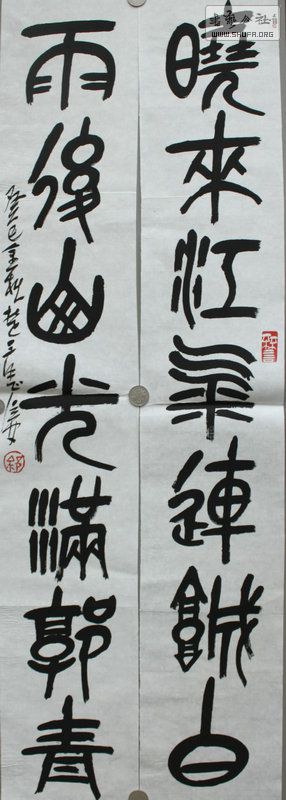 曉來江氣連城白
雨後山光滿郭青
癸巳
書藝公社
WWW.SHUFA.ORG